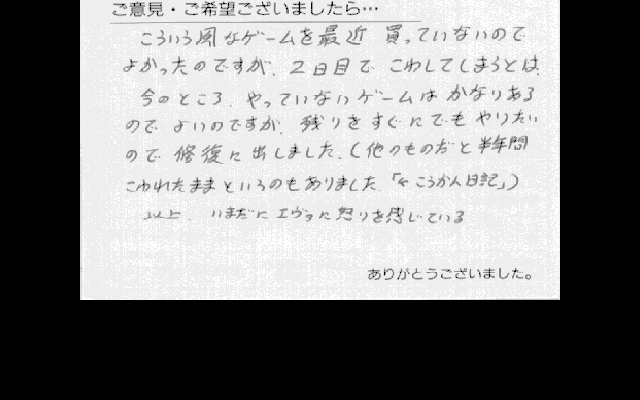 ご意見・ご希望ございましたら…
こういう風なゲームを最近 買っていないので
よかったのですが、2日目で こわしてしまうとは、
今のところ、やっていないゲームは かなりある
ので よいのですが、残りをすぐにでも やりたい
ので 修復に 出しました。(他のものだと 半年間
こわれたままというのもありました。「 ころがん日記」)
以上、いまだに エヴァに 怒りを感じている
ありがとうございました。